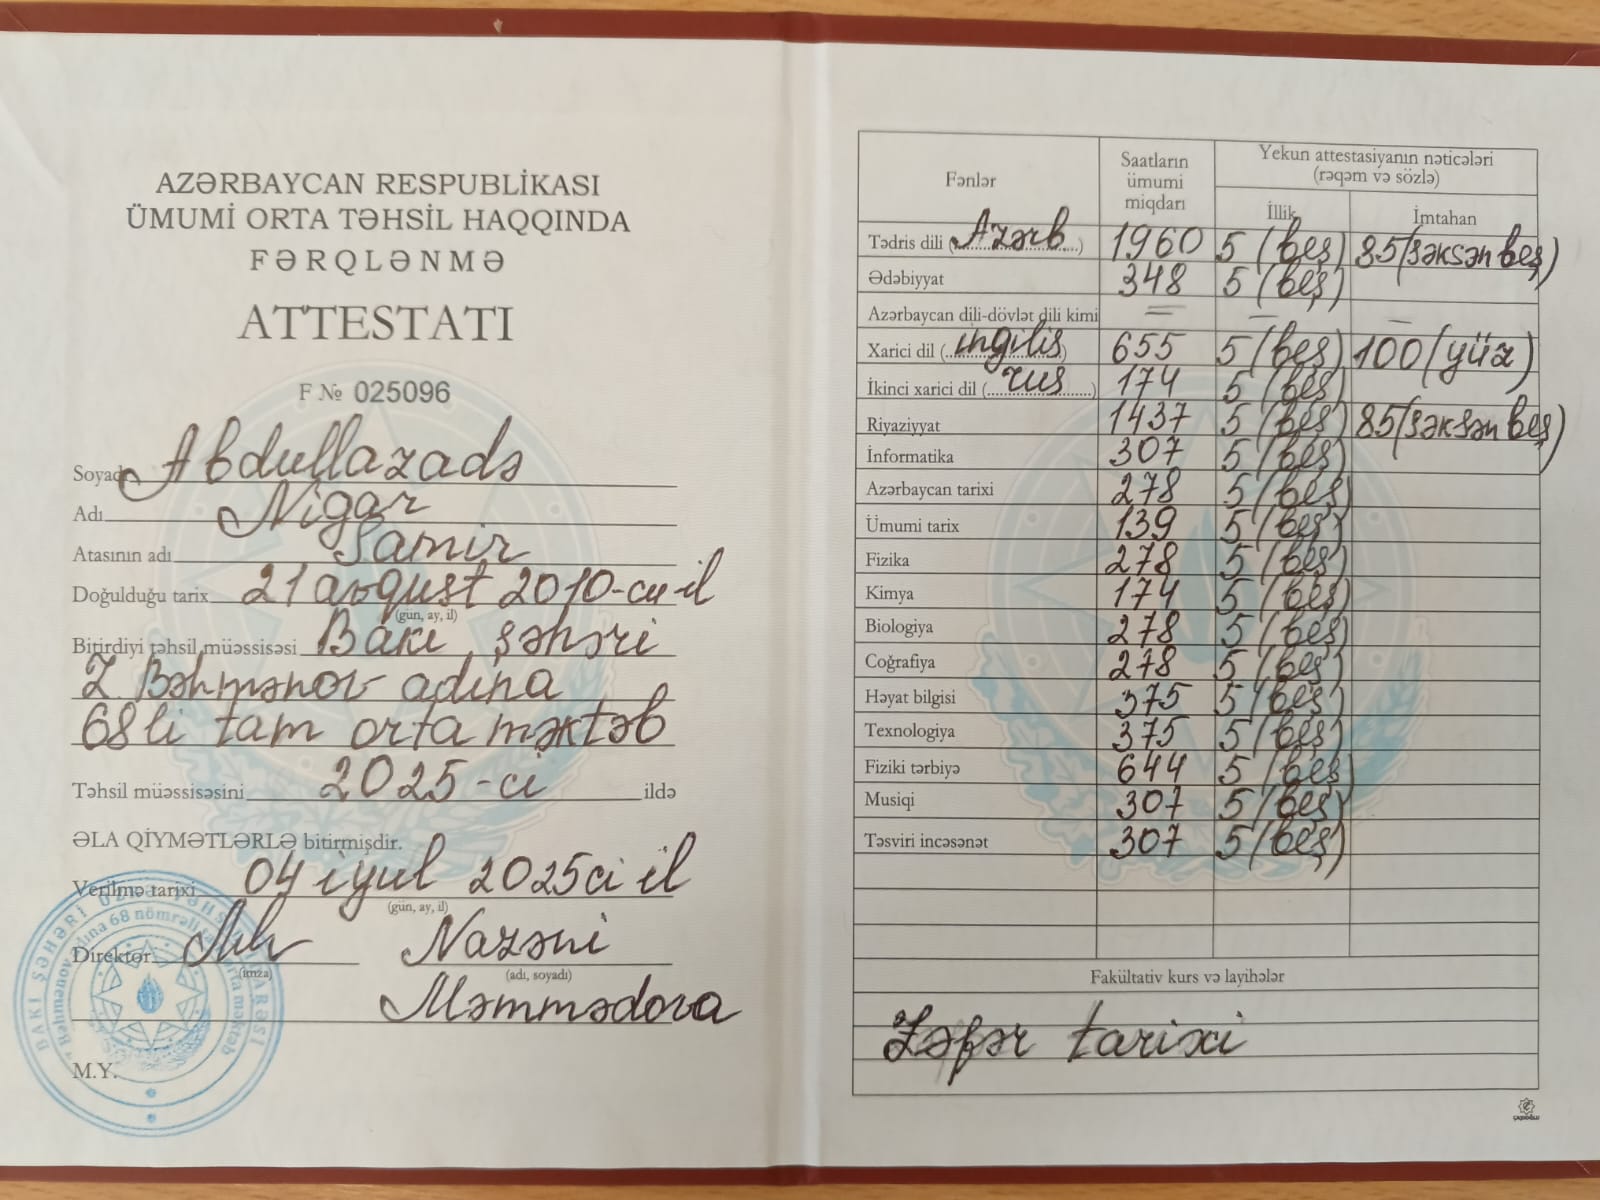 AZƏRBAYCAN RESPUBLİKASI
ÜMUMİ ORTA TƏHSİL HAQQINDA
FƏRQLƏNMƏ
ATTESTATI
F № 025096
Soyadı Abdullazadə
Adı Nigar
Atasının adı Samir
Doğulduğu tarix 21 avqust 2010-cu il
(gün, ay, il)
Bitirdiyi təhsil müəssisəsi Bakı şəhəri
Z. Bəhmənov adına
68 li tam orta məktəb
Təhsil müəssisəsini 2025-ci ildə
ƏLA QİYMƏTLƏRLƏ bitirmişdir.
Verilmə tarixi 04 iyul 2025ci il
(gün, ay, il)
Direktor Nazəni
(imza) (adı, soyadı)
Məmmədova
M.Y.
BAKI ŞƏHƏRİ
Bəhmənov adına 68 nömrəli orta məktəb
Fənlər Saatların ümumi miqdarı Yekun attestasiyanın nəticələri (rəqəm və sözlə)
İllik İmtahan
Tədris dili (Azərb) 1960 5 (beş) 85 (səksən beş)
Ədəbiyyat 348 5 (beş)
Azərbaycan dili-dövlət dili kimi = – –
Xarici dil (ingilis) 655 5 (beş) 100 (yüz)
İkinci xarici dil (rus) 174 5 (beş)
Riyaziyyat 1437 5 (beş) 85 (səksən beş)
İnformatika 307 5 (beş)
Azərbaycan tarixi 278 5 (beş)
Ümumi tarix 139 5 (beş)
Fizika 278 5 (beş)
Kimya 174 5 (beş)
Biologiya 278 5 (beş)
Coğrafiya 278 5 (beş)
Həyat bilgisi 375 5 (beş)
Texnologiya 375 5 (beş)
Fiziki tərbiyə 644 5 (beş)
Musiqi 307 5 (beş)
Təsviri incəsənət 307 5 (beş)
Fakültativ kurs və layihələr
Zəfər tarixi
ÇAŞIOĞLU